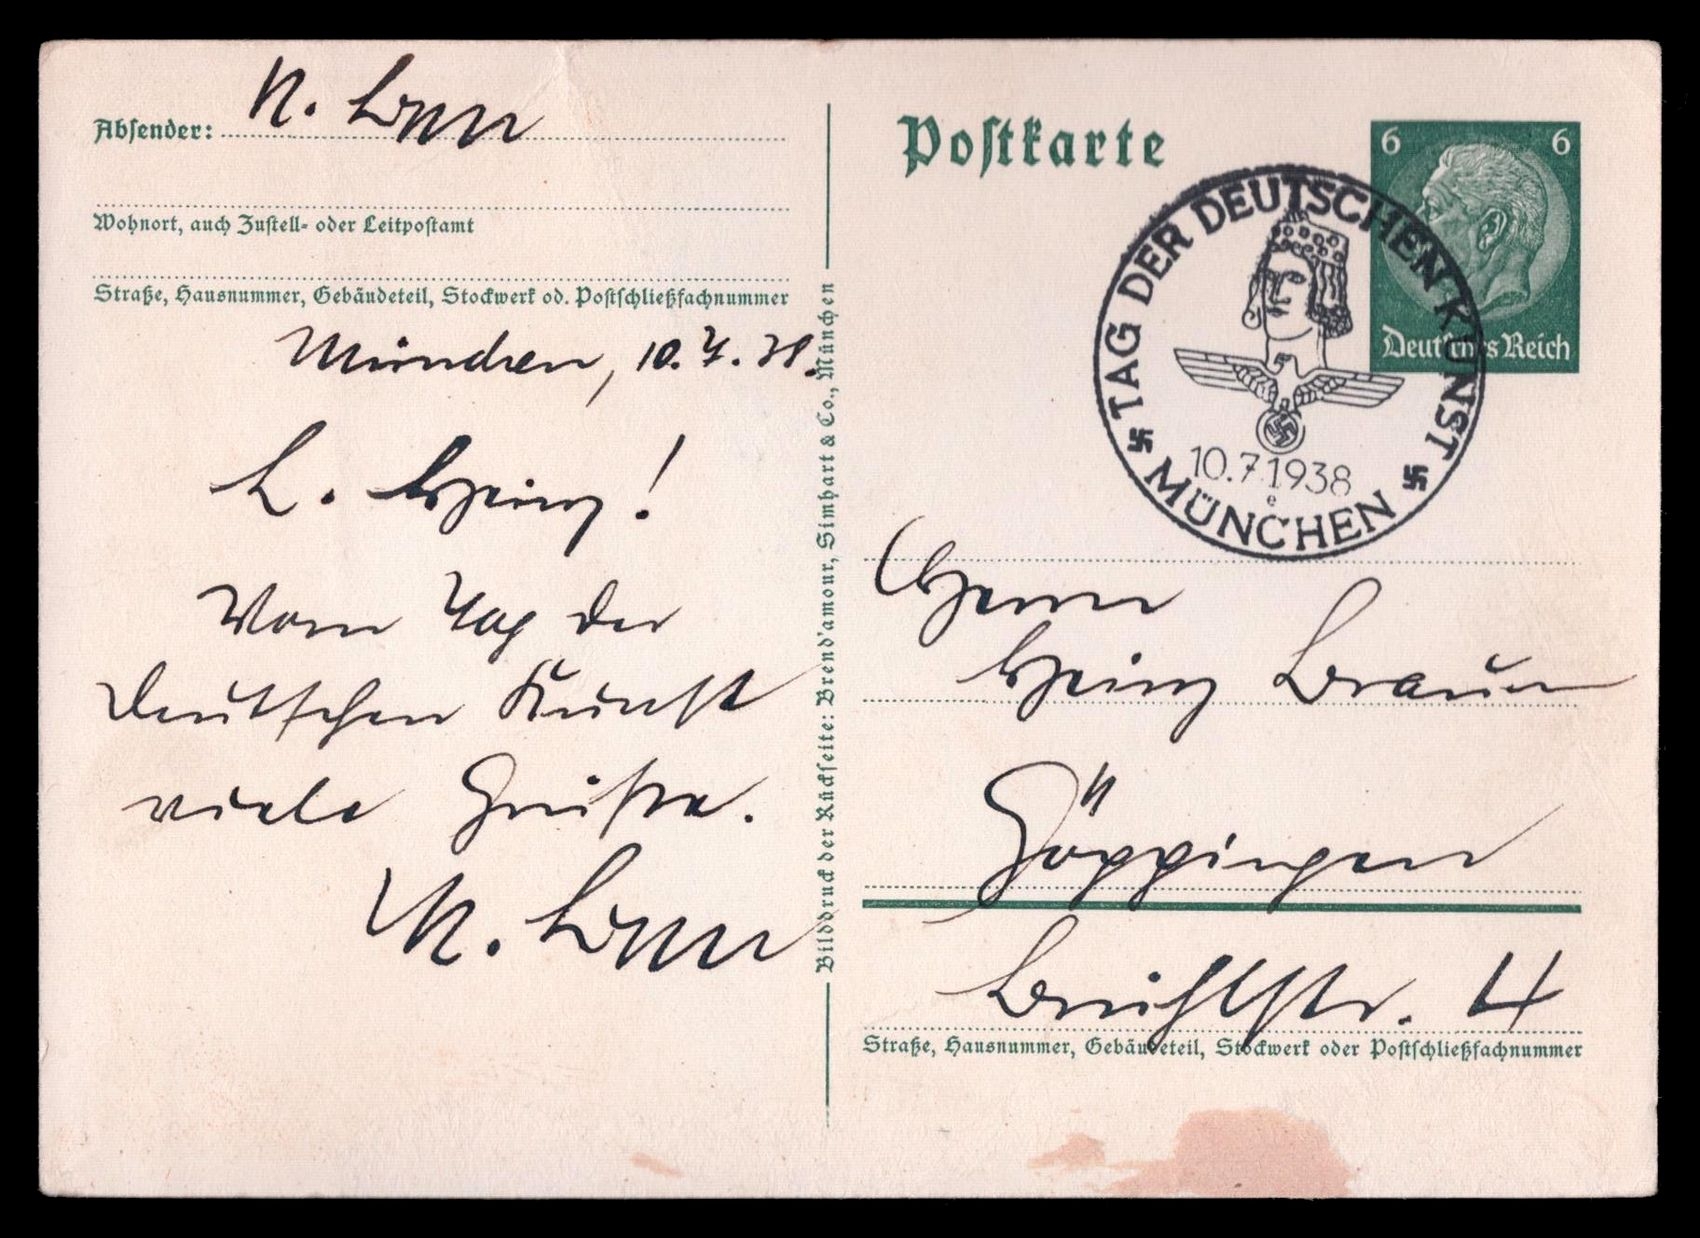 Absender:
Wohnort, auch Zustell- oder Leitpostamt
Straße, Hausnummer, Gebäudeteil, Stockwerk od. Postschließfachnummer
München, 10.7.38.
L. Heinz!
Vom Tag der
Deutschen Kunst
viele Grüße.
Bilddruck der Rückseite: Brend'amour, Simhart & Co., München
Postkarte
6 6
Deutsches Reich
TAG DER DEUTSCHEN KUNST
10.7.1938
e
MÜNCHEN
Herrn
Heinz Braun
Göppingen
Brühlstr. 4
Straße, Hausnummer, Gebäudeteil, Stockwerk oder Postschließfachnummer